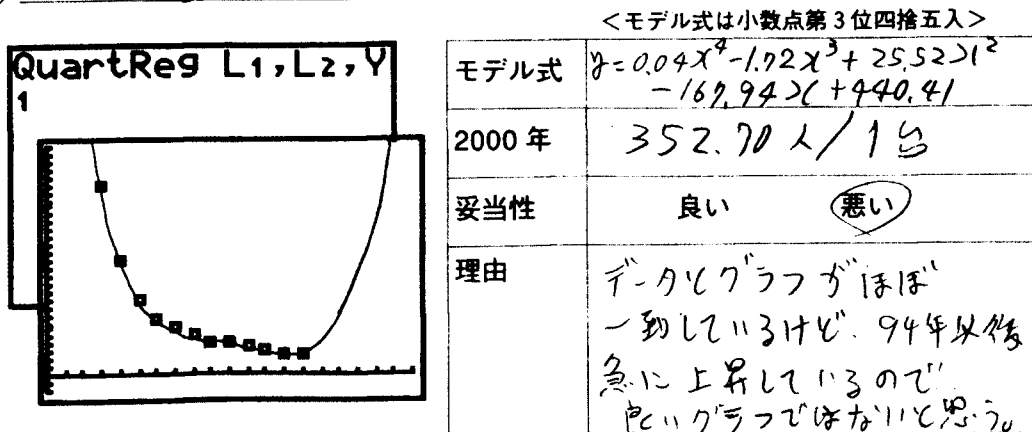 <モデル式は小数点第3位四捨五入>
QuartReg L1,L2,Y
1
モデル式
y=0.04x⁴-1.72x³+25.52x²
-167.94x+440.41
2000年
352.70人/1台
妥当性
良い 悪い
理由
データとグラフがほぼ
一致しているけど、94年以後
急に上昇しているので
良いグラフではないと思う。